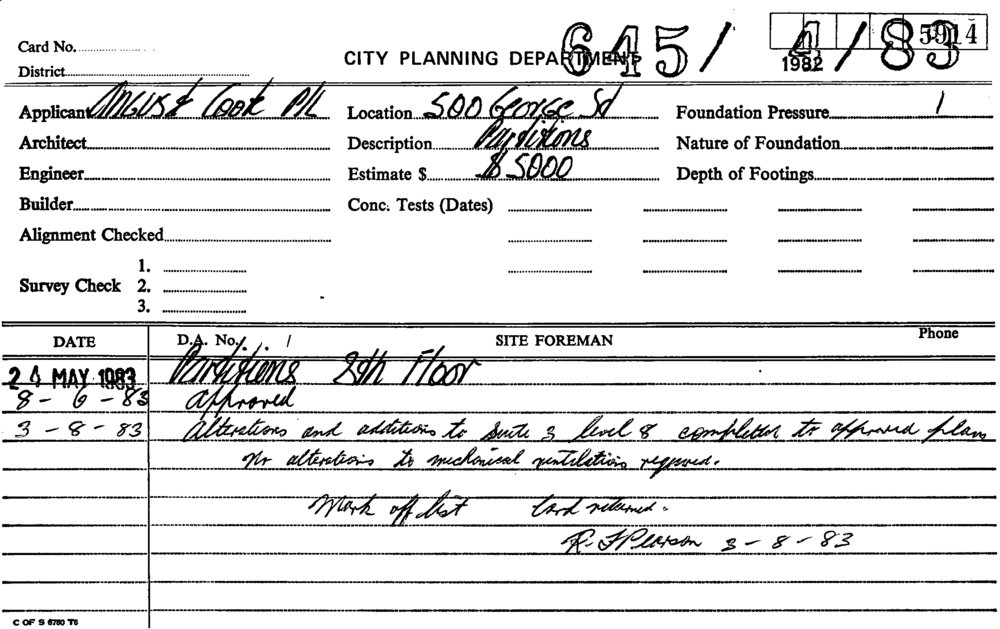 Card No.
CITY PLANNING DEPARTMENT 645/4/83 5914
1982
District
Applicant Angus & Cook P/L Location 500 George St Foundation Pressure /
Architect Description Partitions Nature of Foundation
Engineer Estimate $ $5000 Depth of Footings
Builder Conc. Tests (Dates)
Alignment Checked
1.
Survey Check 2.
3.
DATE D.A. No. / SITE FOREMAN Phone
24 MAY 1983 Partitions 8th Floor
8-6-83 Approved
3-8-83 Alterations and additions to Suite 3 level 8 completed to approved plans
No alterations to mechanical ventilation required.
Mark off list Card returned.
R. F Pearson 3-8-83
C OF S 6750 T6